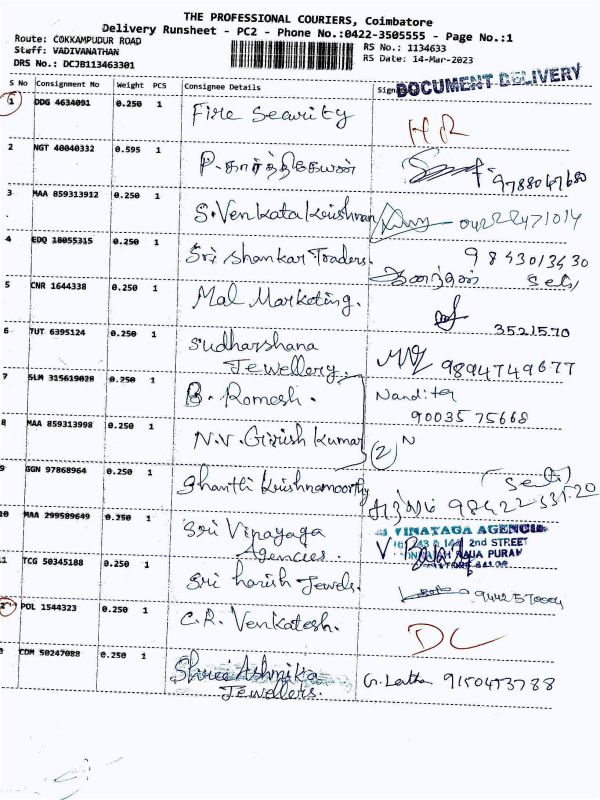 THE PROFESSIONAL COURIERS, Coimbatore
Delivery Runsheet - PC2 - Phone No.:0422-3505555 - Page No.:1
Route: COKKAMPUDUR ROAD
RS No.: 1134633
Staff: VADIVANATHAN
RS Date: 14-Mar-2023
DRS No.: DCJB113463301
DOCUMENT DELIVERY
S No Consignment No Weight PCS Consignee Details Sign
1 DDG 4634091 0.250 1 Fire Security HR
2 NGT 40040332 0.595 1 P. கார்த்திகேயன் 9788047680
3 MAA 859313912 0.250 1 S. Venkata Krishnan 04222471014
4 EDQ 18055315 0.250 1 Sri Shankar Traders. 9843013430
5 CNR 1644338 0.250 1 Mal Marketing. 3521570
6 TUT 6395124 0.250 1 Sudharshana
Jewellery. 9894749677
7 SLM 315619028 0.250 1 B. Romesh. Nandita
90035 75668
8 MAA 859313998 0.250 1 N.V. Girish Kumar (2) N
9 GGN 97868964 0.250 1 Shanthi Krishnamoorthy
10 MAA 299589649 0.250 1 Sri Vinayaga
Agencies.
VINAYAGA AGENCIES
2nd STREET
11 TCG 50345188 0.250 1 Sri harish Jewels.
POL 1544323 0.250 1 C.R. Venkatesh. DC
CDM 50247088 0.250 1 Shree Ashmika
Jewellers. G. Latha 9150473788